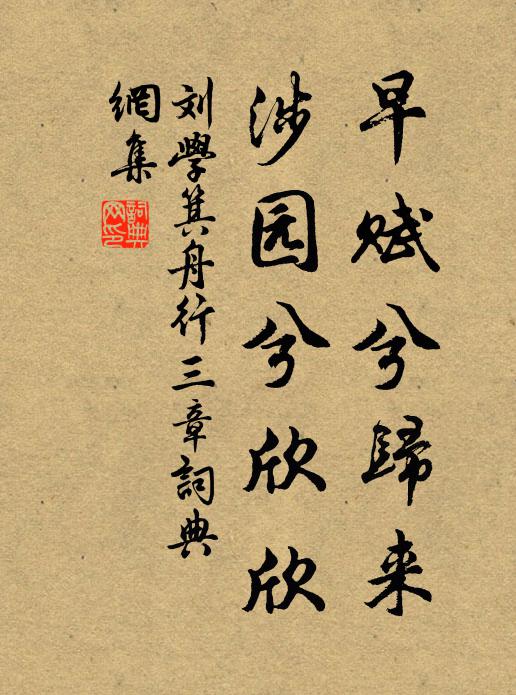 早赋兮歸来
涉园兮欣欣
刘學箕舟行三章詞典
網集
詞典
网印